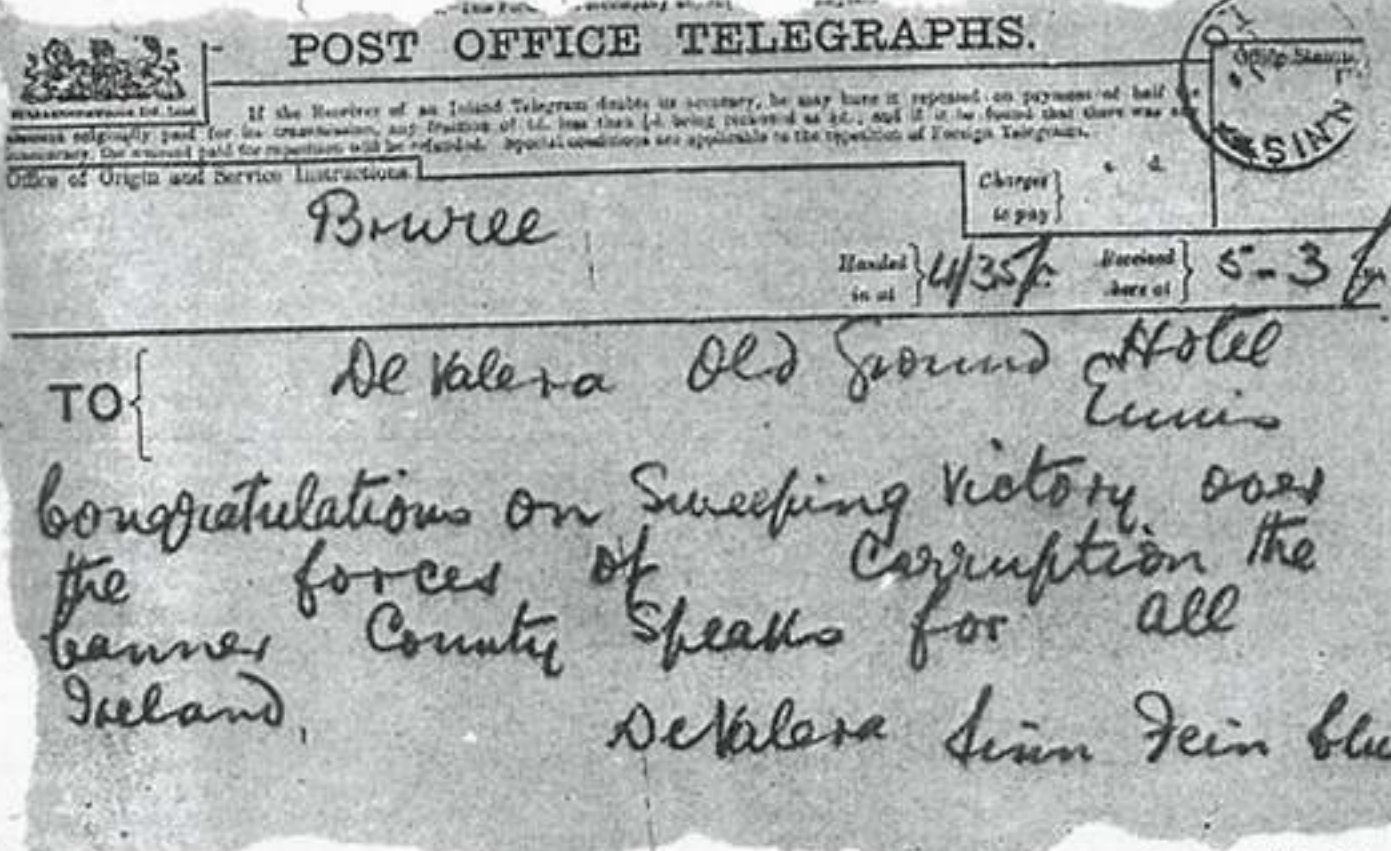 POST OFFICE TELEGRAPHS.
If the Receiver of an Inland Telegram doubts its accuracy, he may have it repeated on payment of half the
amount originally paid for its transmission, any fraction of 1d. less than ½d. being reckoned as ½d., and if it be found that there was any
inaccuracy, the amount paid for repetition will be refunded. Special conditions are applicable to the repetition of Foreign Telegrams.
Office of Origin and Service Instructions.
Office Stamp.
ENNIS
Charges
to pay
s. d.
Bruree
Handed
in at
4/35
Received
here at
5-3
TO
De Valera Old Ground Hotel
Ennis
Congratulations on Sweeping Victory over
the forces of Carruption the
banner County Speaks for all
Ireland,
De Valera Sinn Fein Clu